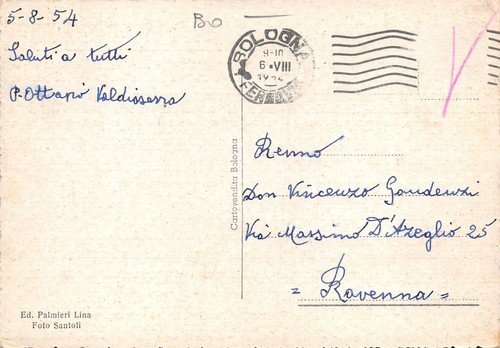 5-8-54
BO
Saluti a tutti
P. Ottavio Valdiserra
BOLOGNA
9-10
6·VIII
FERROVIA
Cartovendita Bologna
Renno
Don Vincenzo Gaudenzi
Via Massimo D'Azeglio 25
= Ravenna =
Ed. Palmieri Lina
Foto Santoli